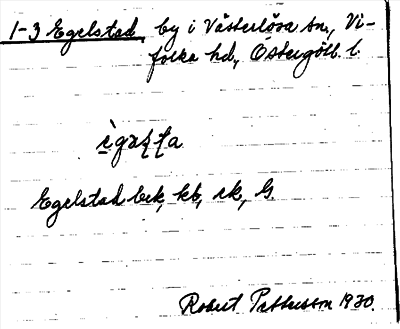 1-3 Egelstad, by i Västerlösa sn., Vi-
folka hd, Östergötl. l.
Egelstad bek, kb, ek, G.
Robert Pettersson 1930.